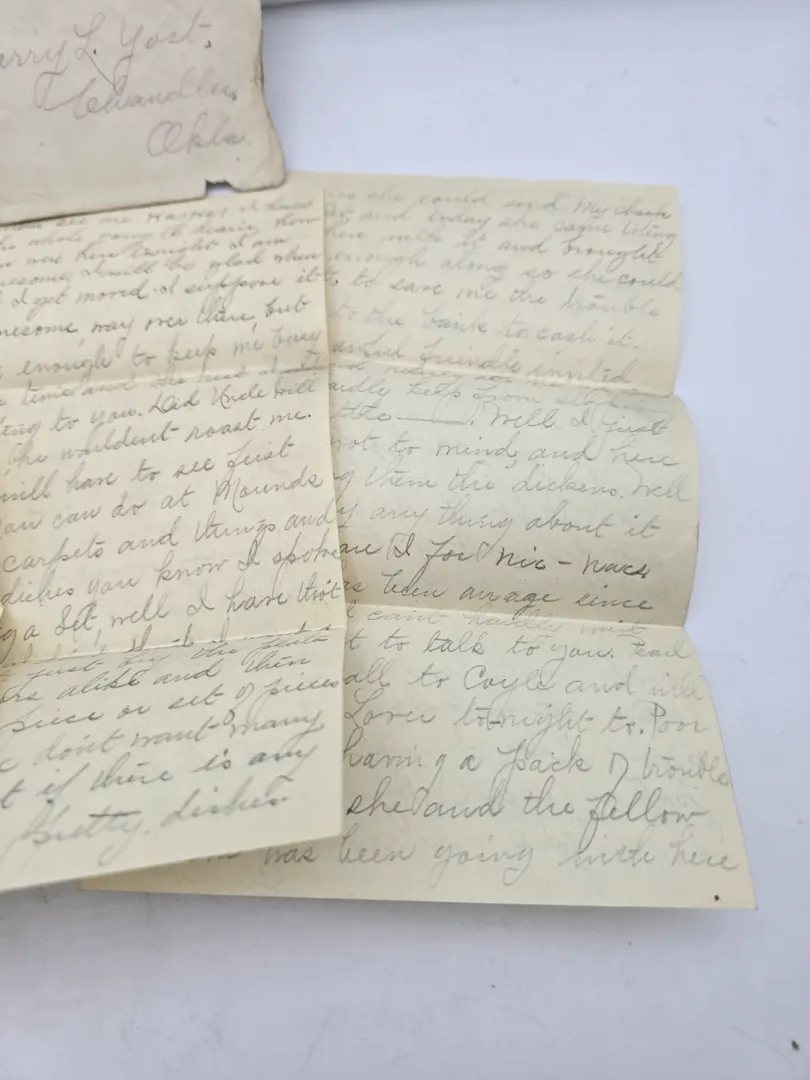 arry L. Yost.
Chandler,
Okla.
see me I have
the whole gang to hearing how
here tonight I am
lonesome, I will be glad when
I get moved. I suppose it
lonesome, way over there, but
enough to keep me busy
time and the rest
ting to you. Did Uncle Will
he wouldent roast me.
will have to see first
you can do at Mounds
carpets and things and
dishes you know I spoke
g a Set, well I have thot
just buy the plates
ors alike and then
piece or set of pieces
dont want many
t if there is any
Pretty dishes.
she could send my check
and today she came
here with it and brought
enough along so she could
to save me the trouble
to the bank to cash it.
awful friendly invited
ardly keep from
the ———. Well I just
not to mind, and here
g them the dickens. Well
y any thing about it
are I for nic-nacs
as been an age since
I cant hardly wait
t to talk to you. Pearl
all to Coyle and will
Lover to-night to. Poor
having a pack of trouble
she and the fellow
has been going with here